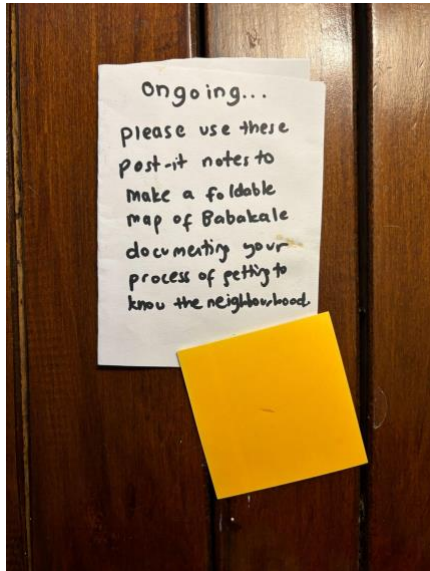 ongoing...
please use these
post-it notes to
make a foldable
map of Babakale
documenting your
process of getting to
know the neighbourhood